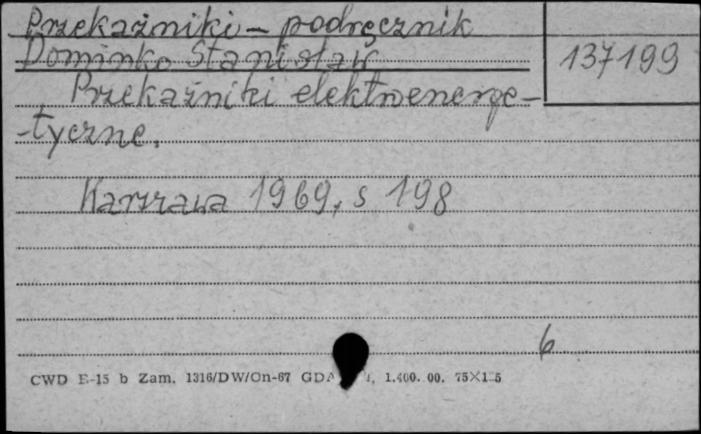 Przekaźniki – podręcznik
Dominko Stanisław
137199
Przekaźniki elektroenerge-
-tyczne.
Warszawa 1969, s 198
6
CWD E-15 b Zam. 1316/DW/On-67 1.400.00. 75X125